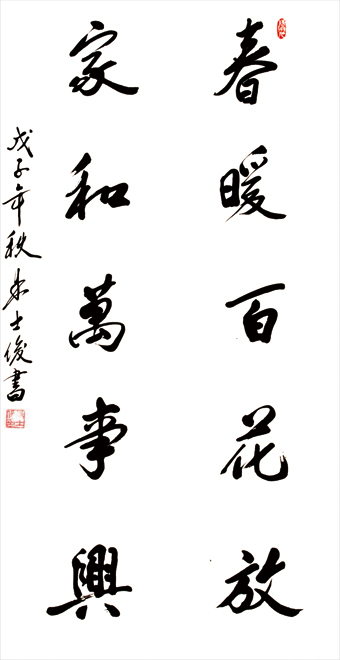 春暖百花放
家和萬事興
戊子年秋朱士俊書